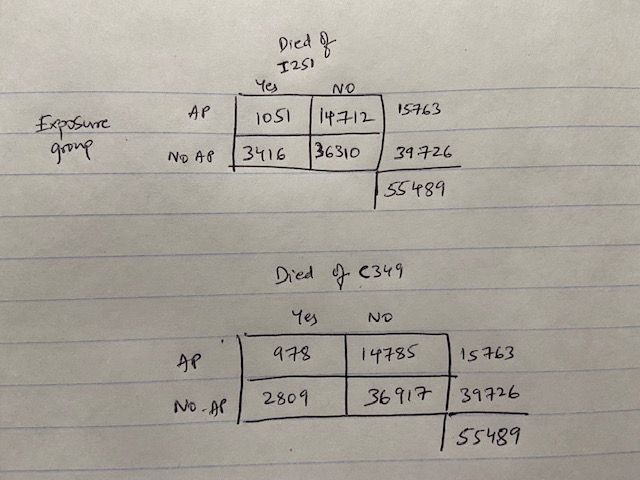 Died of
I251
Yes NO
AP 1051 14712 15763
Exposure
group
NO AP 3416 36310 39726
55489
Died of C349
Yes NO
AP 978 14785 15763
NO-AP 2809 36917 39726
55489